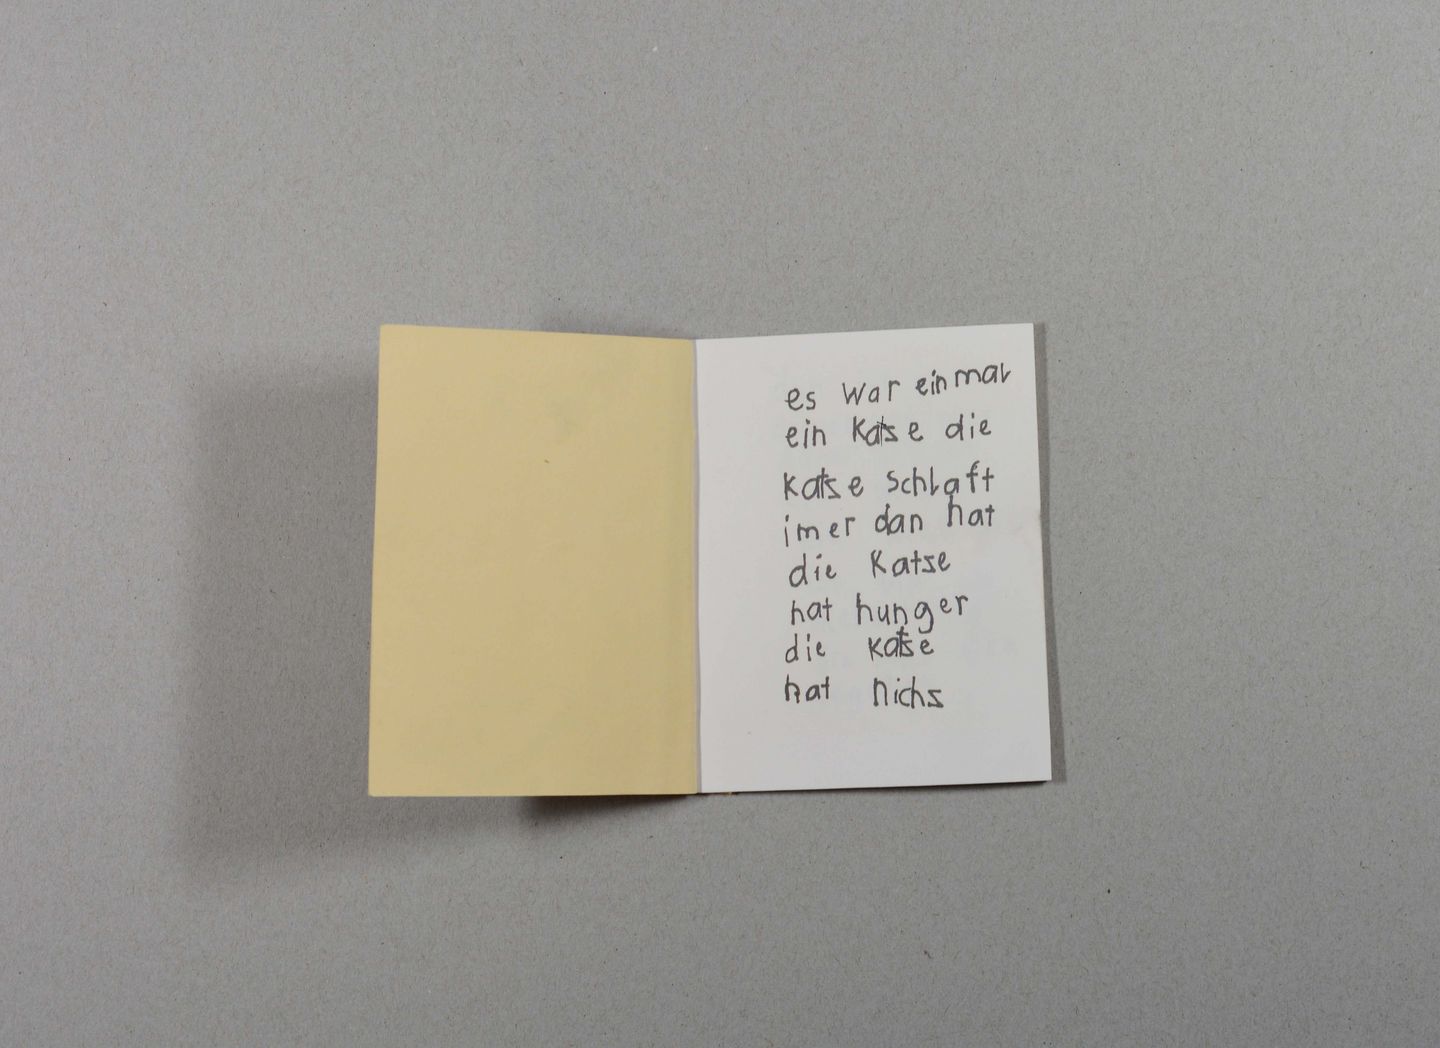 es war einmal
ein Katse die
Katse schlaft
imer dan hat
die Katse
hat hunger
die Katse
hat nichs